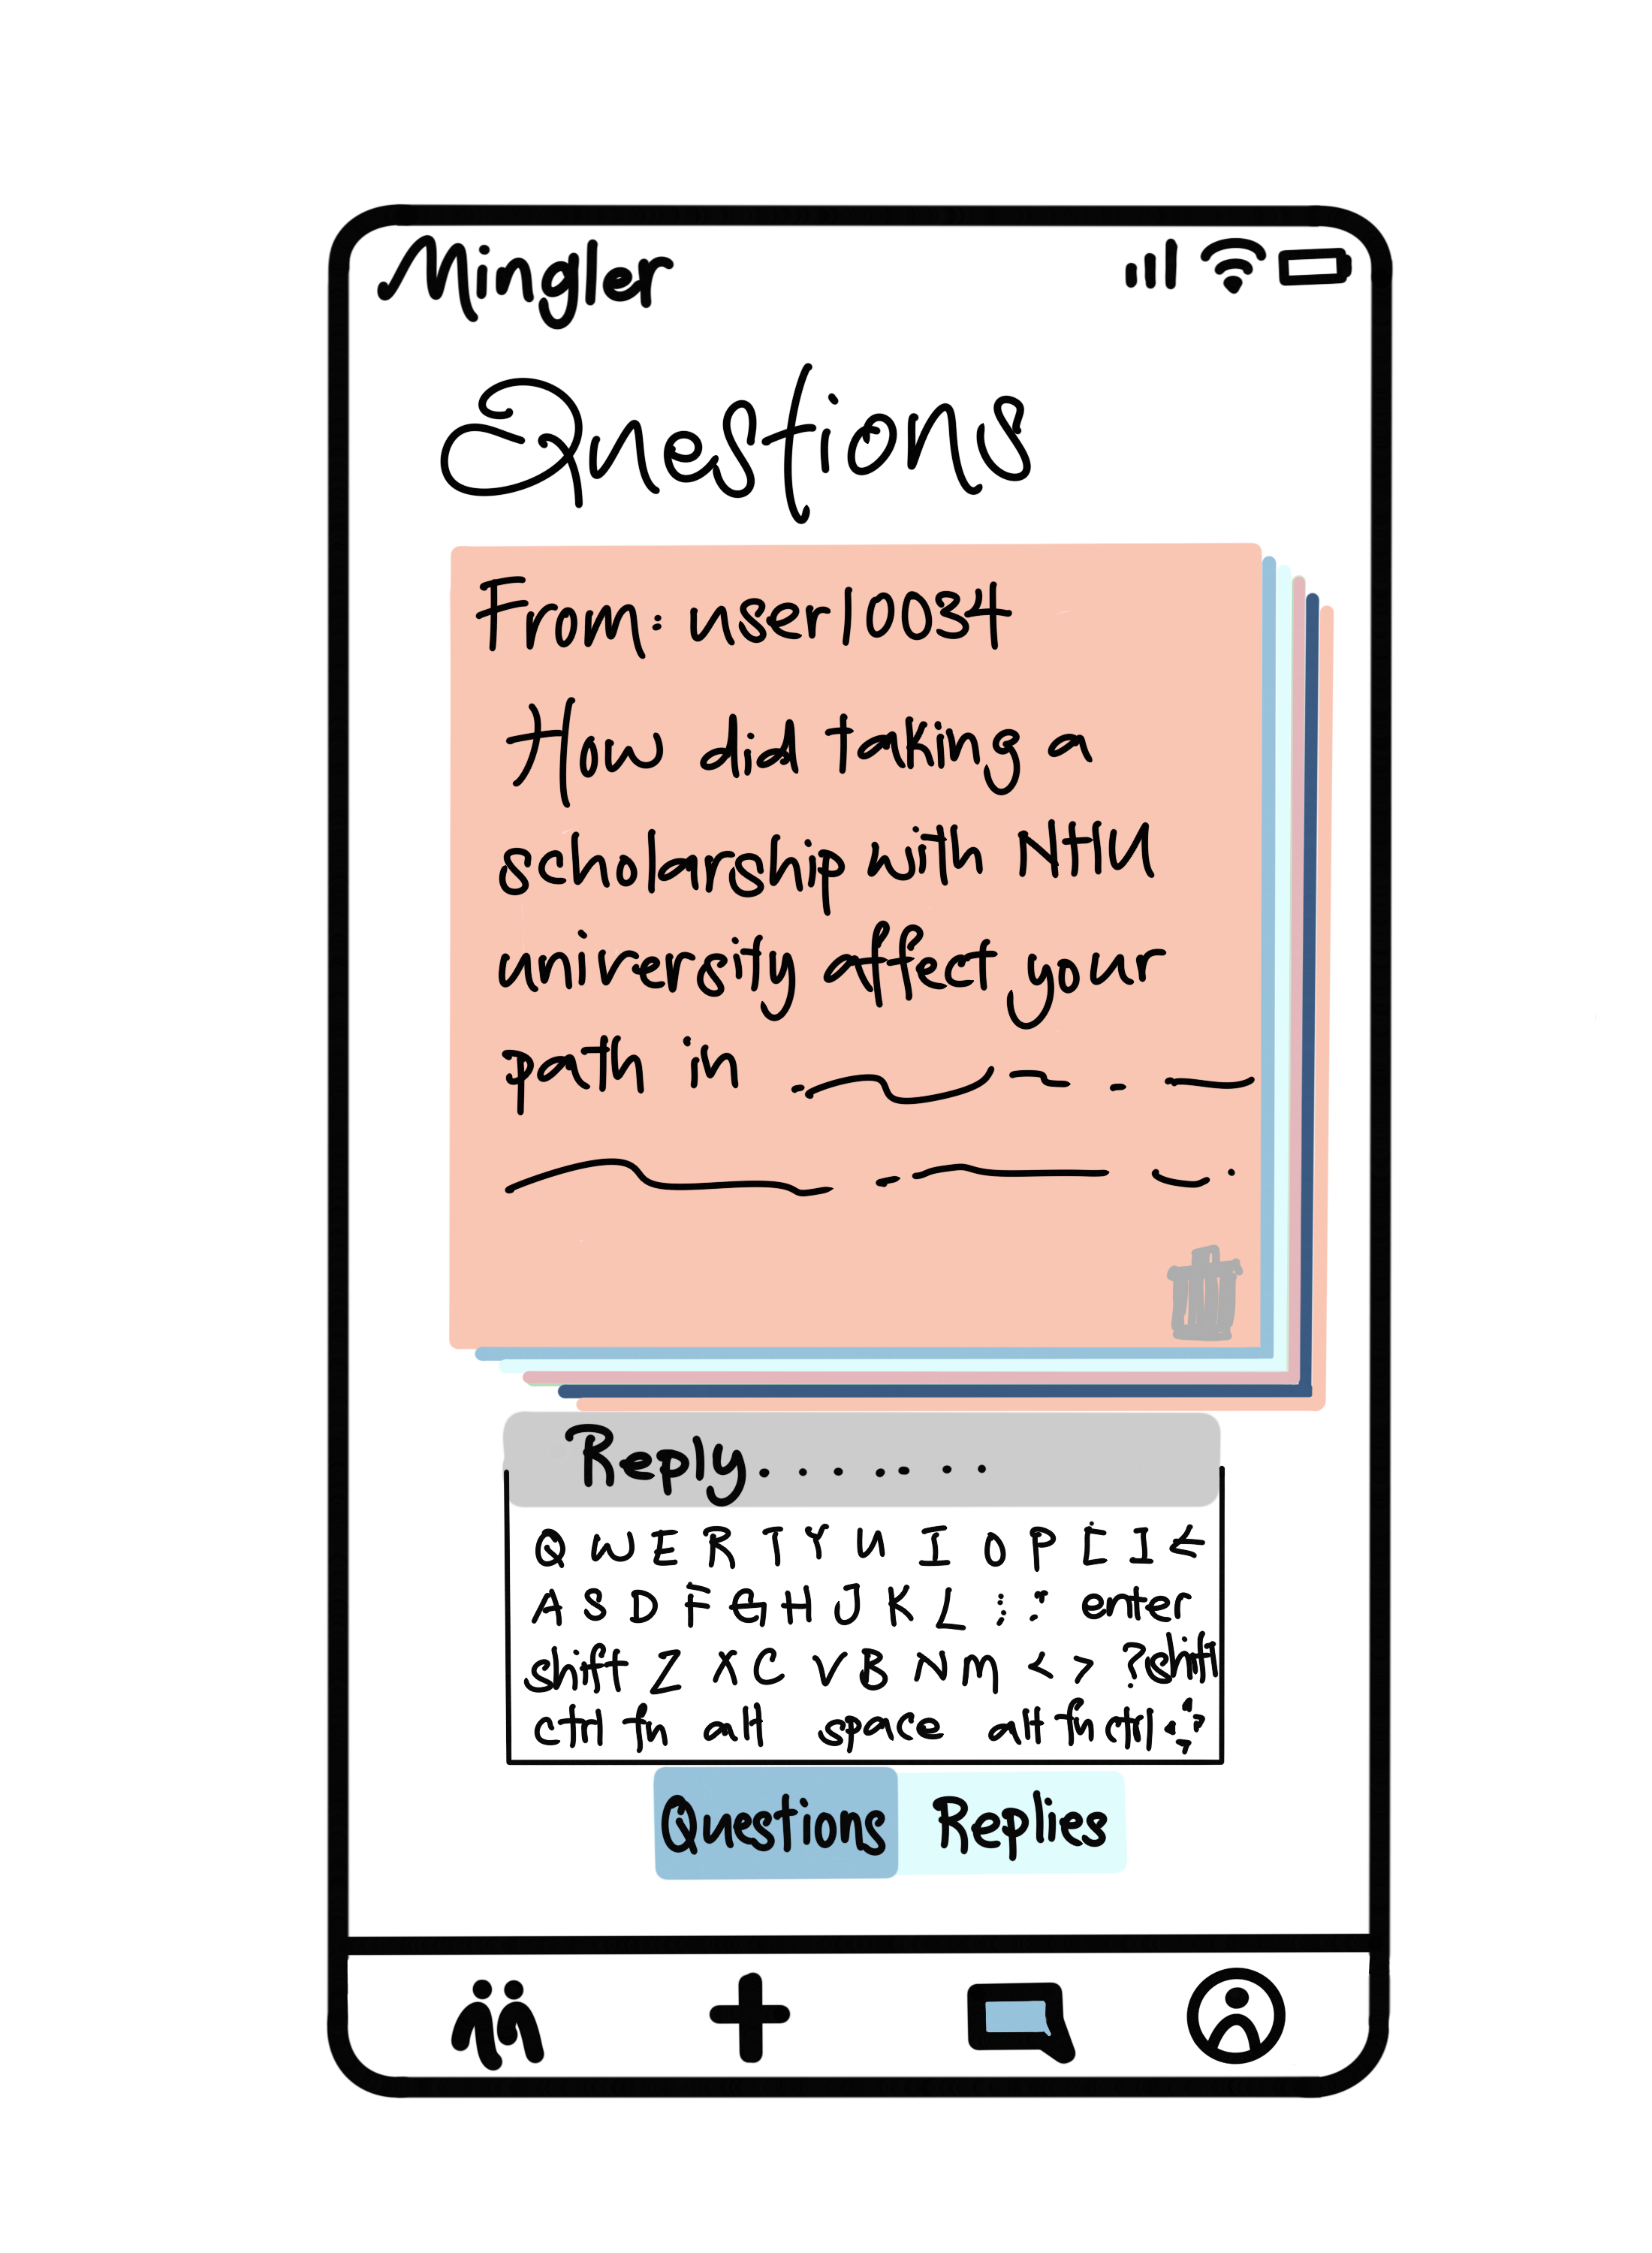 Mingler
Questions
From: user10034
How did taking a
scholarship with NTU
university affect your
path in
Reply........
Q W E R T Y U I O P [ ]
A S D F G H J K L : " enter
shift Z X C V B N M < > ? shift
ctrl fn alt space alt fn ctrl
Questions Replies